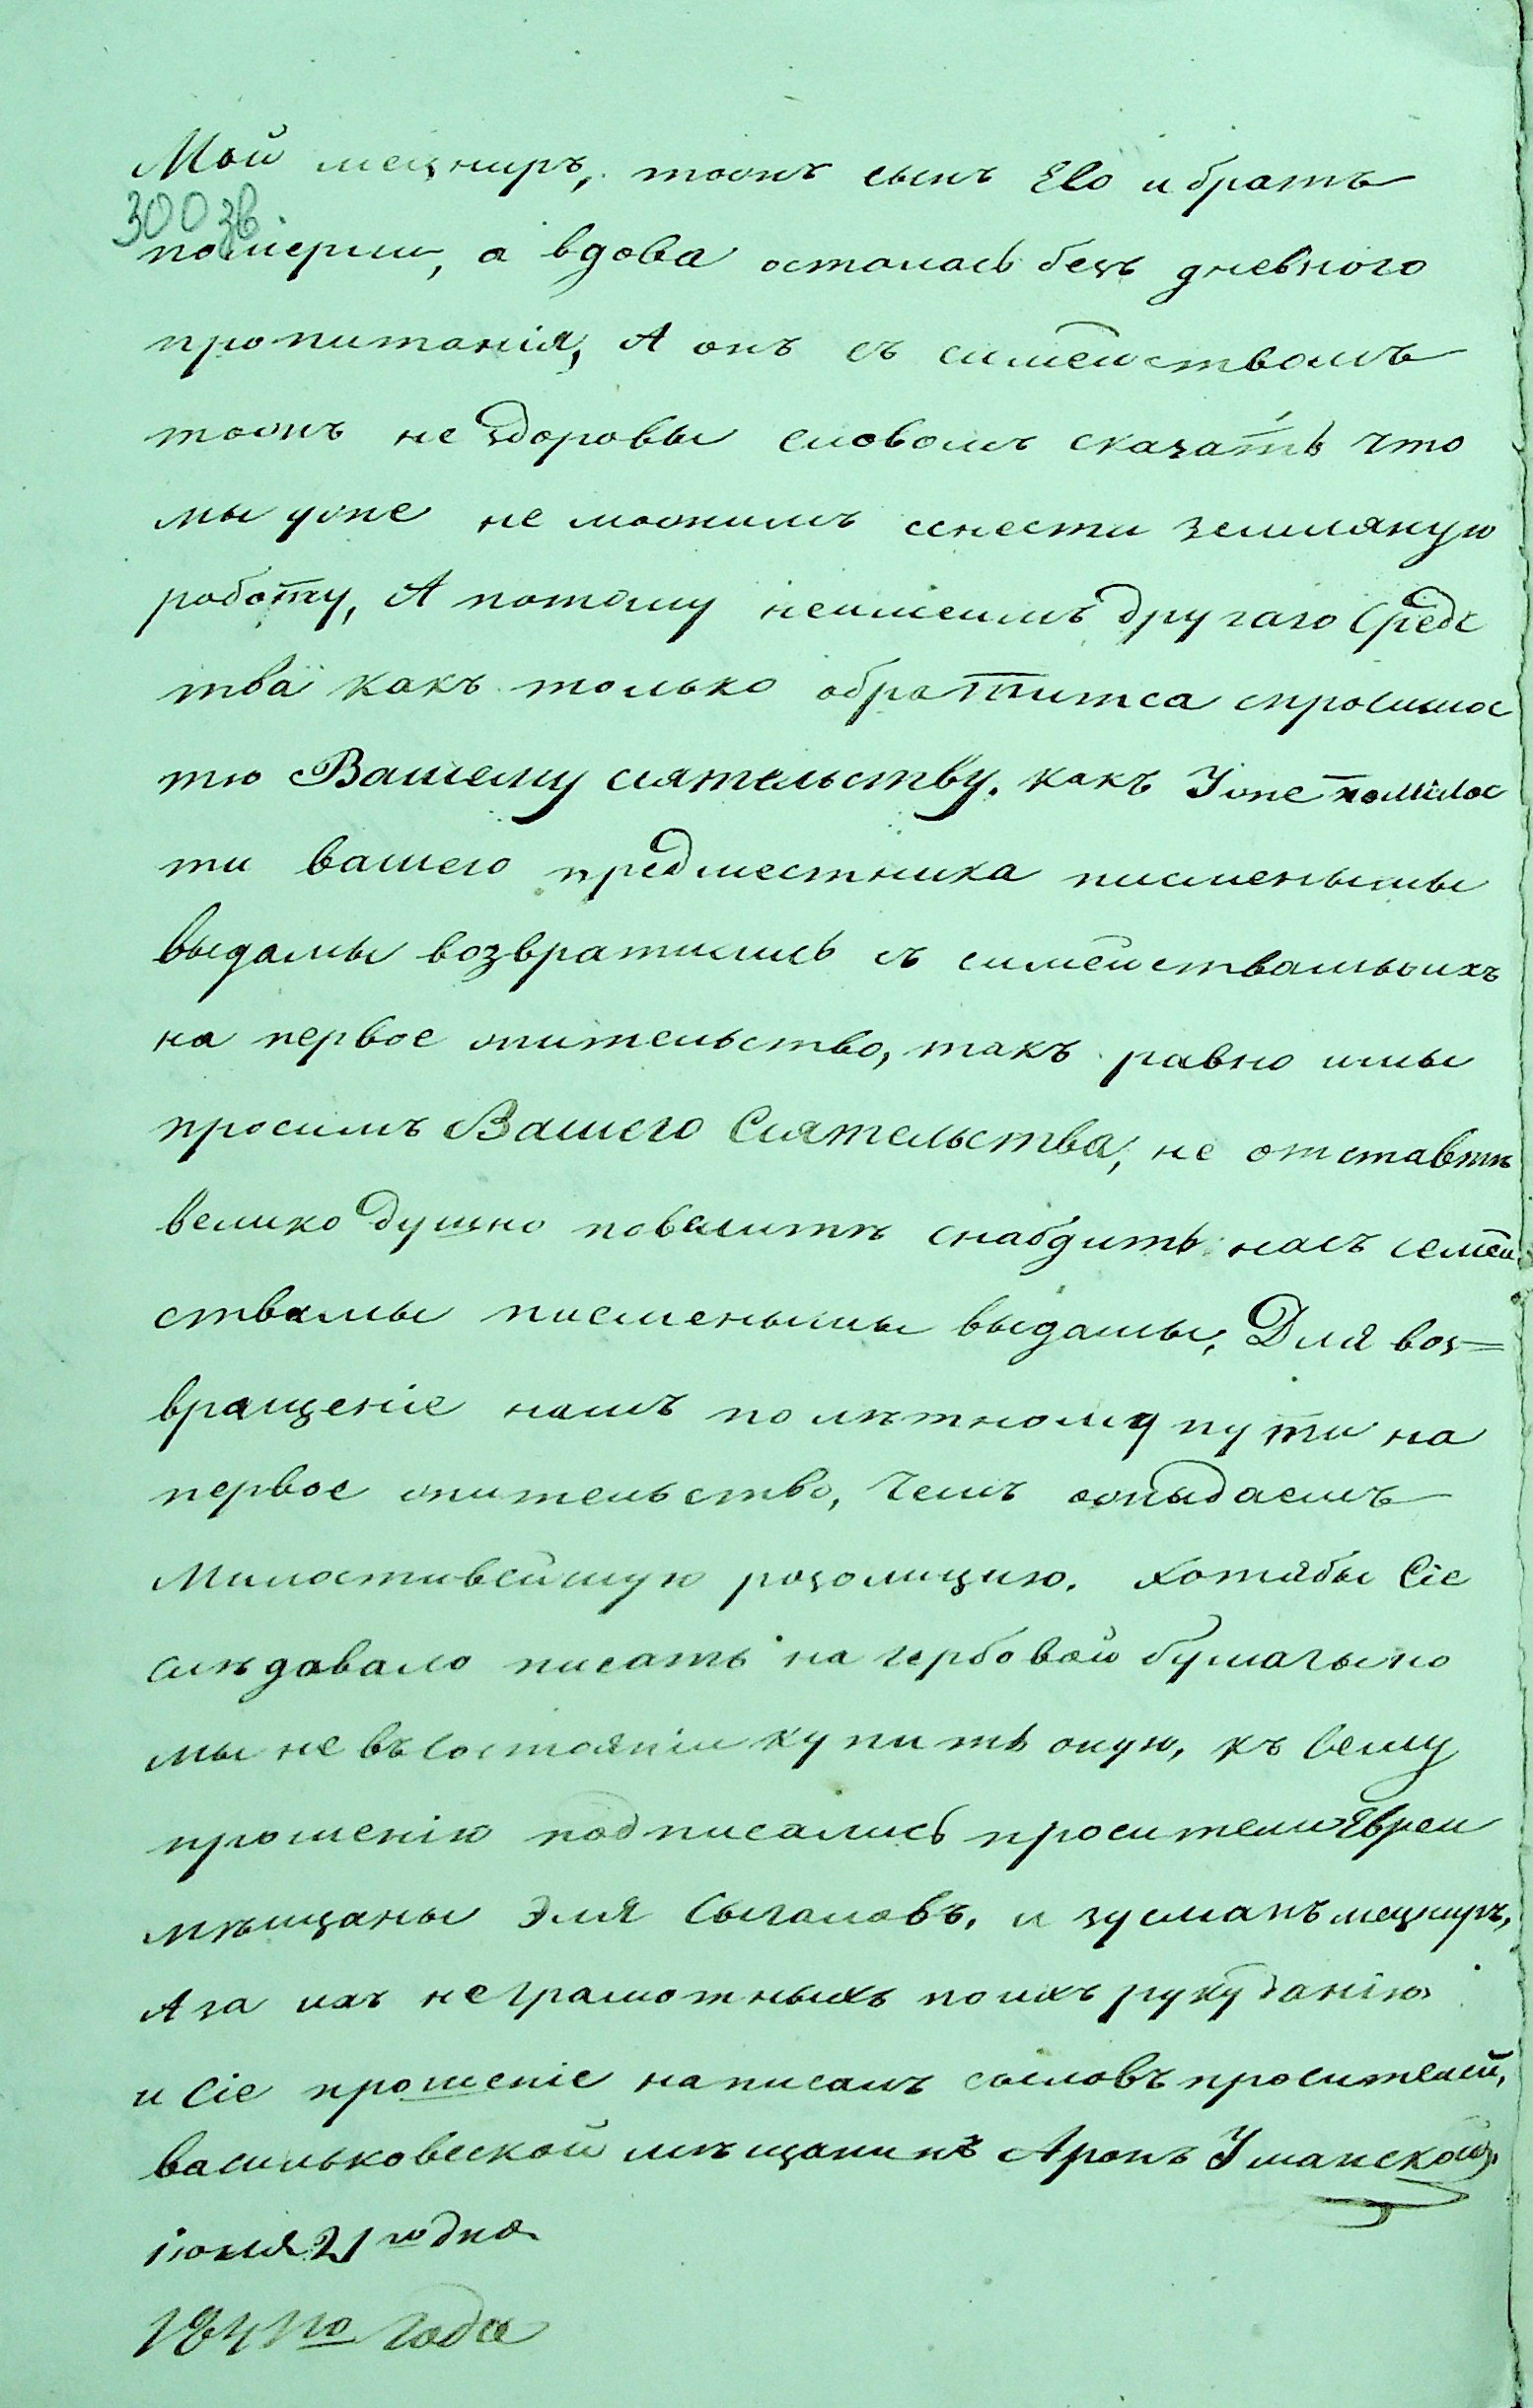 Мой мецниръ, тожъ сынъ Его и братъ
300 зв.
померли, а вдова осталась безъ дневного
пропитанія, А онъ съ симействомъ
тожъ не здоровы словомъ сказать что
мы уже не можимъ снести земляную
работу, А потому неимеимъ другаго Средс
тва какъ только обратитса спросимос
тю Вашему сиятельству. какъ Уже помилос
ти вашего предместника писменнымы
выдамы возвратились съ симействамы ихъ
на первое жительство, такъ равно имы
просимъ Вашего Сиятельства, не отставть
велико душно повелить снабдить насъ семей
ствамы писменнымы выдамы, Для воз=
вращеніе намъ по летному пути на
первое жительство, Чемъ ожыдаемъ
Милостивейшую розолицию. Хотябы Сіе
следовало писать на гербовой бумагы но
мы не въ Состояніи купить оную, къ Сему
прошенію подписались просители Евреи
мѣщаны Эля Сыгаловъ, и Зусманъ мецниръ,
А за ихъ неграмотныхъ по ихъ рукуданію
и Сіе прошеніе написалъ сословъ просителей,
васильковской мѣщанинъ Аронъ Уманской
июня 21го дня
1841го Года